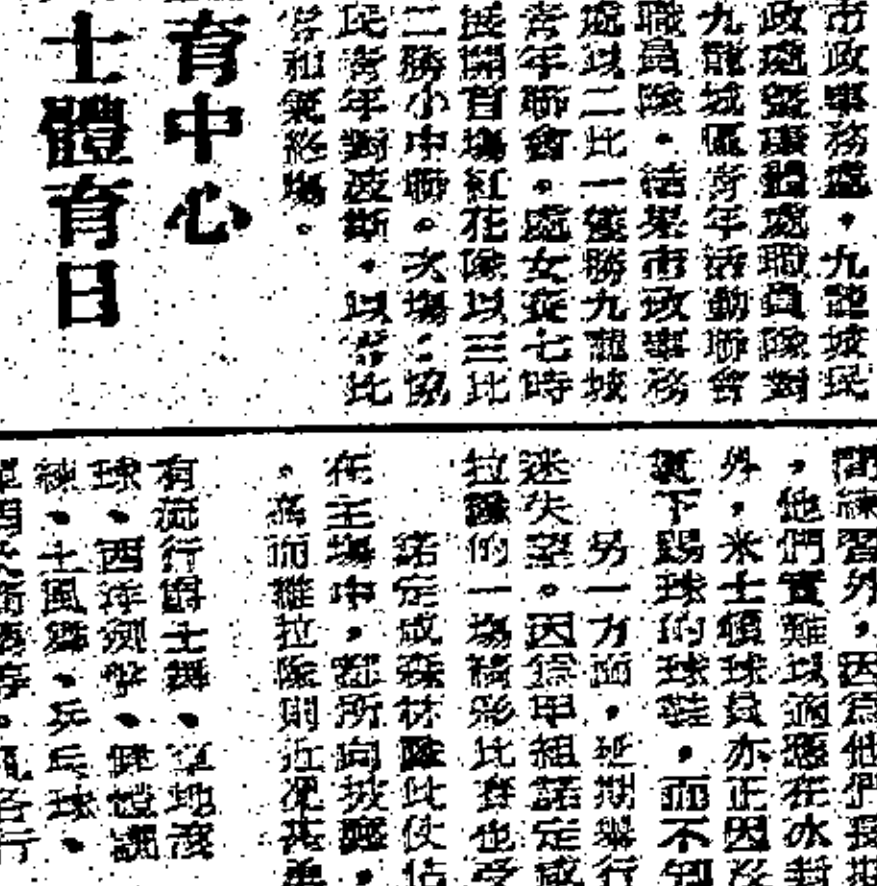 市政事務處，九龍城民
政處暨康體處職員隊對
九龍城區青年活動聯會
職員隊。結果市政事務
處以二比一獲勝九龍城
青年聯會。處女座七時
展開首場紅花隊以三比
二勝小中聯。次場：協
民青年對波斯，以零比
零和氣終場。
育中心
士體育日
間練習外，因為他們
，他們實難以適應在冰封
外，米士頓球員亦正因
下踢球的球鞋，而不
另一方面，延期舉行
迷失望。因為甲組諾定咸
拉隊的一場精彩比賽也受
諾定咸森林隊此仗佔
在主場中，都所向披靡，
。而維拉隊則近況甚勇
有流行爵士舞、草地滾
球、西洋劍擊、健體訓
練、土風舞、乒乓球、